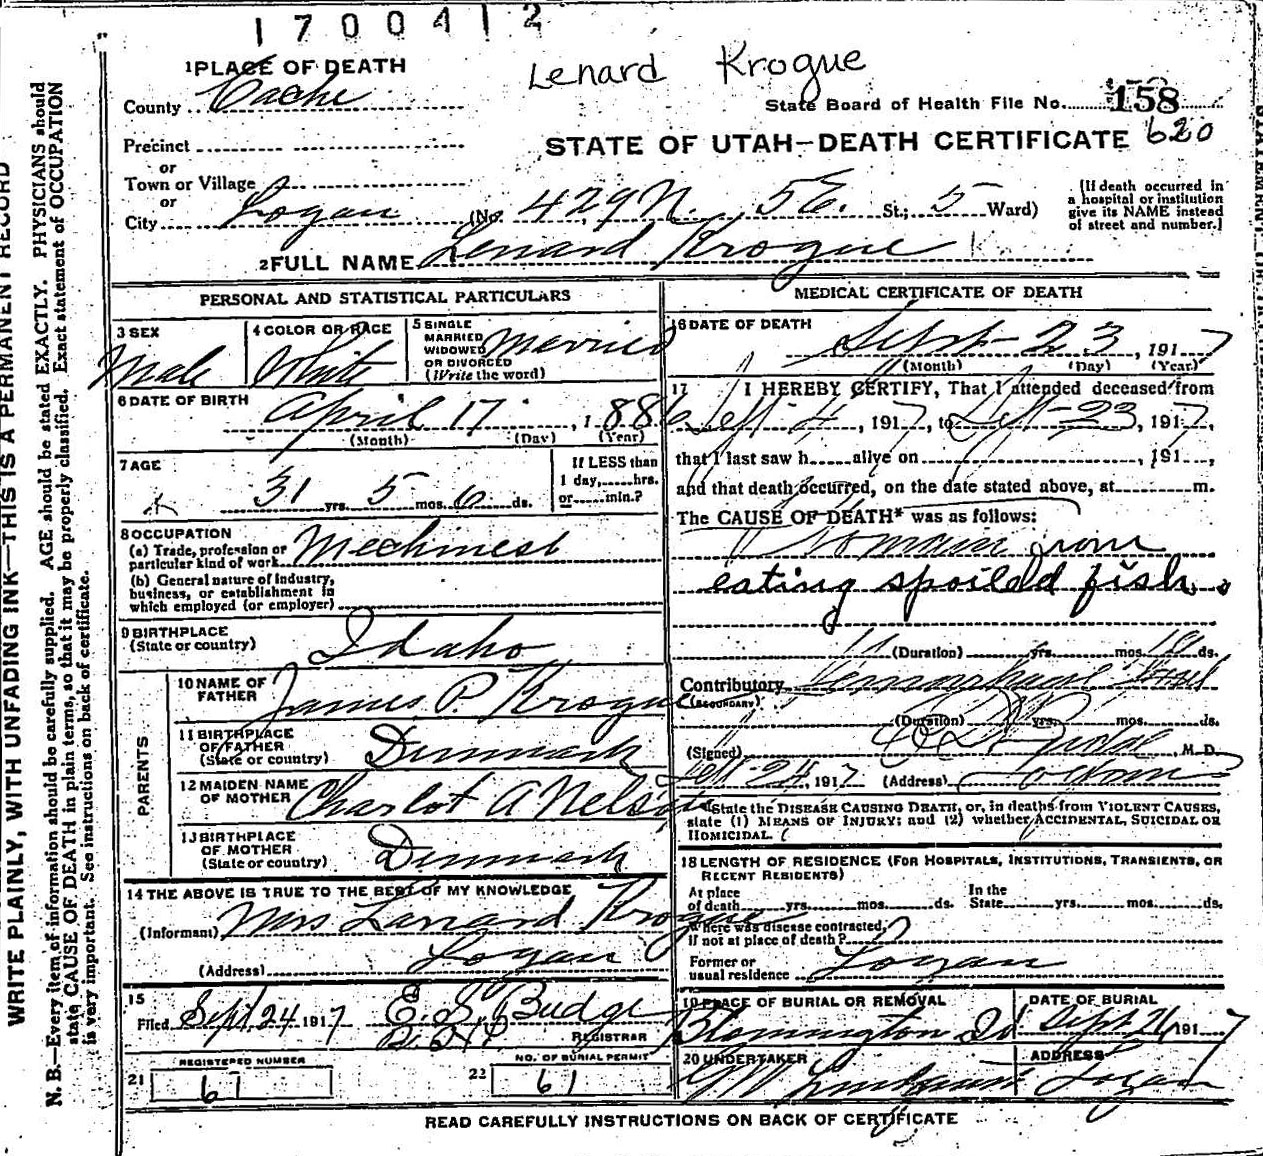 1700412
Lenard Krogue
1 PLACE OF DEATH
County Cache
State Board of Health File No. 158
620
STATE OF UTAH—DEATH CERTIFICATE
Precinct
or
Town or Village
or
City Logan (No. 429 N. 5 E. St.; 5 Ward)
(If death occurred in a hospital or institution give its NAME instead of street and number.)
2 FULL NAME Lenard Krogue
PERSONAL AND STATISTICAL PARTICULARS
3 SEX Male
4 COLOR OR RACE White
5 SINGLE MARRIED WIDOWED OR DIVORCED (Write the word) Married
6 DATE OF BIRTH April 17, 1886
(Month) (Day) (Year)
7 AGE 31 yrs. 5 mos. 6 ds.
If LESS than 1 day, hrs. or min.?
8 OCCUPATION
(a) Trade, profession or particular kind of work Mechinest
(b) General nature of industry, business, or establishment in which employed (or employer)
9 BIRTHPLACE (State or country) Idaho
PARENTS
10 NAME OF FATHER James P. Krogue
11 BIRTHPLACE OF FATHER (State or country) Denmark
12 MAIDEN NAME OF MOTHER Charlot A Nelson
13 BIRTHPLACE OF MOTHER (State or country) Denmark
14 THE ABOVE IS TRUE TO THE BEST OF MY KNOWLEDGE
(Informant) Mrs Lenard Krogue
(Address) Logan
15
Filed Sept 24 1917 E. S. Budge
REGISTRAR
REGISTERED NUMBER
21 61
NO. OF BURIAL PERMIT
22 61
MEDICAL CERTIFICATE OF DEATH
16 DATE OF DEATH
Sept 23, 1917
(Month) (Day) (Year)
17 I HEREBY CERTIFY, That I attended deceased from
Sept 4, 1917, to Sept 23, 1917,
that I last saw h alive on , 191 ,
and that death occurred, on the date stated above, at m.
The CAUSE OF DEATH* was as follows:
Ptomain from
eating spoiled fish.
(Duration) yrs. mos. 19 ds.
Contributory (SECONDARY)
(Duration) yrs. mos. ds.
(Signed) M. D.
Sept 24, 1917 (Address) Logan
*State the DISEASE CAUSING DEATH, or, in deaths from VIOLENT CAUSES, state (1) MEANS OF INJURY; and (2) whether ACCIDENTAL, SUICIDAL OR HOMICIDAL.
18 LENGTH OF RESIDENCE (FOR HOSPITALS, INSTITUTIONS, TRANSIENTS, OR RECENT RESIDENTS)
At place of death yrs. mos. ds. In the State yrs. mos. ds.
Where was disease contracted, if not at place of death?
Former or usual residence Logan
19 PLACE OF BURIAL OR REMOVAL
Blomington Id
DATE OF BURIAL
Sept 26 1917
20 UNDERTAKER
ADDRESS
Logan
READ CAREFULLY INSTRUCTIONS ON BACK OF CERTIFICATE
WRITE PLAINLY, WITH UNFADING INK—THIS IS A PERMANENT RECORD
N. B.—Every item of information should be carefully supplied. AGE should be stated EXACTLY. PHYSICIANS should
state CAUSE OF DEATH in plain terms, so that it may be properly classified. Exact statement of OCCUPATION
is very important. See instructions on back of certificate.